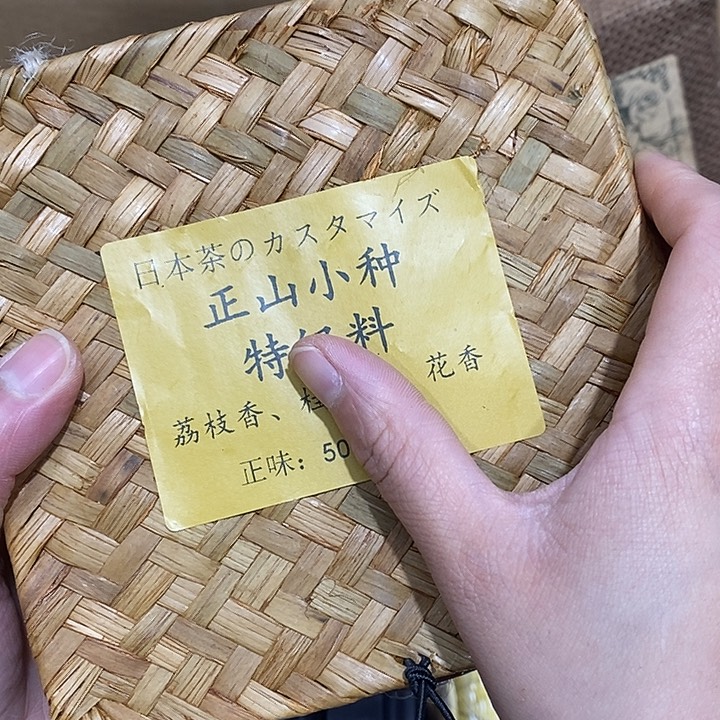 日本茶のカスタマイズ
正山小种
特 料
荔枝香、 花香
正味: 50